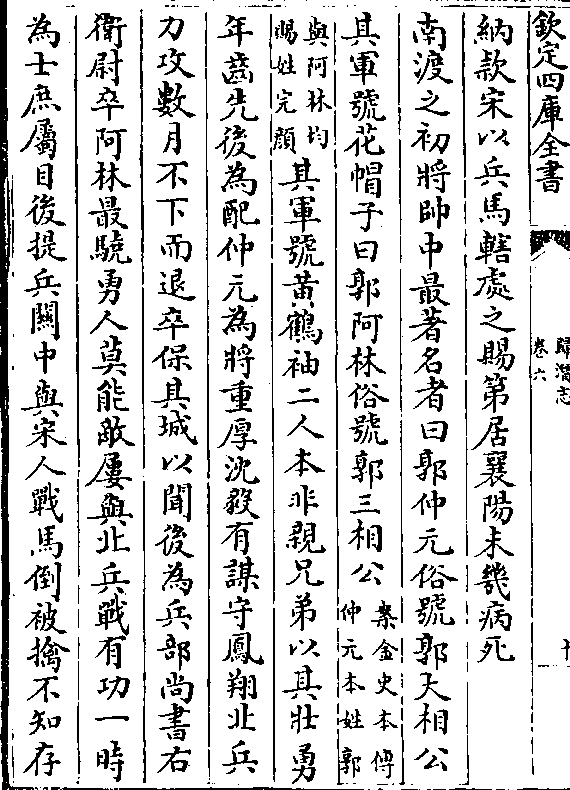 欽定四庫全書
歸潛志
卷六
納款宋以兵馬轄處之賜第居襄陽未幾病死
南渡之初將帥中最著名者曰郭仲元俗號郭大相公
其軍號花帽子曰郭阿林俗號郭三相公案金史本傳仲元本姓郭
與阿林均賜姓完顏其軍號黃鶴袖二人本非親兄弟以其壯勇
年齒先後為配仲元為將重厚沈毅有謀守鳳翔北兵
力攻數月不下而退卒保其城以聞後為兵部尚書右
衛尉卒阿林最驍勇人莫能敵屢與北兵戰有功一時
為士庶屬目後提兵關中與宋人戰馬倒被擒不知存